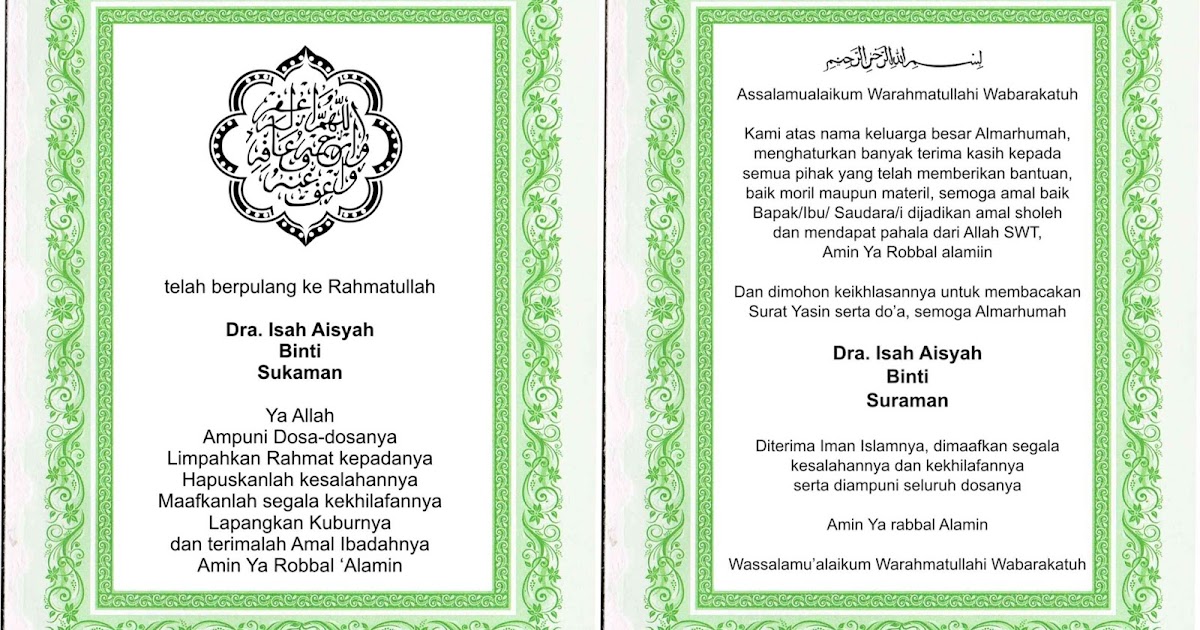 اللهم اغفر له
وارحمه وعافه
واعف عنه
telah berpulang ke Rahmatullah
Dra. Isah Aisyah
Binti
Sukaman
Ya Allah
Ampuni Dosa-dosanya
Limpahkan Rahmat kepadanya
Hapuskanlah kesalahannya
Maafkanlah segala kekhilafannya
Lapangkan Kuburnya
dan terimalah Amal Ibadahnya
Amin Ya Robbal ‘Alamin
بسم الله الرحمن الرحيم
Assalamualaikum Warahmatullahi Wabarakatuh
Kami atas nama keluarga besar Almarhumah,
menghaturkan banyak terima kasih kepada
semua pihak yang telah memberikan bantuan,
baik moril maupun materil, semoga amal baik
Bapak/Ibu/ Saudara/i dijadikan amal sholeh
dan mendapat pahala dari Allah SWT,
Amin Ya Robbal alamiin
Dan dimohon keikhlasannya untuk membacakan
Surat Yasin serta do’a, semoga Almarhumah
Dra. Isah Aisyah
Binti
Suraman
Diterima Iman Islamnya, dimaafkan segala
kesalahannya dan kekhilafannya
serta diampuni seluruh dosanya
Amin Ya rabbal Alamin
Wassalamu’alaikum Warahmatullahi Wabarakatuh